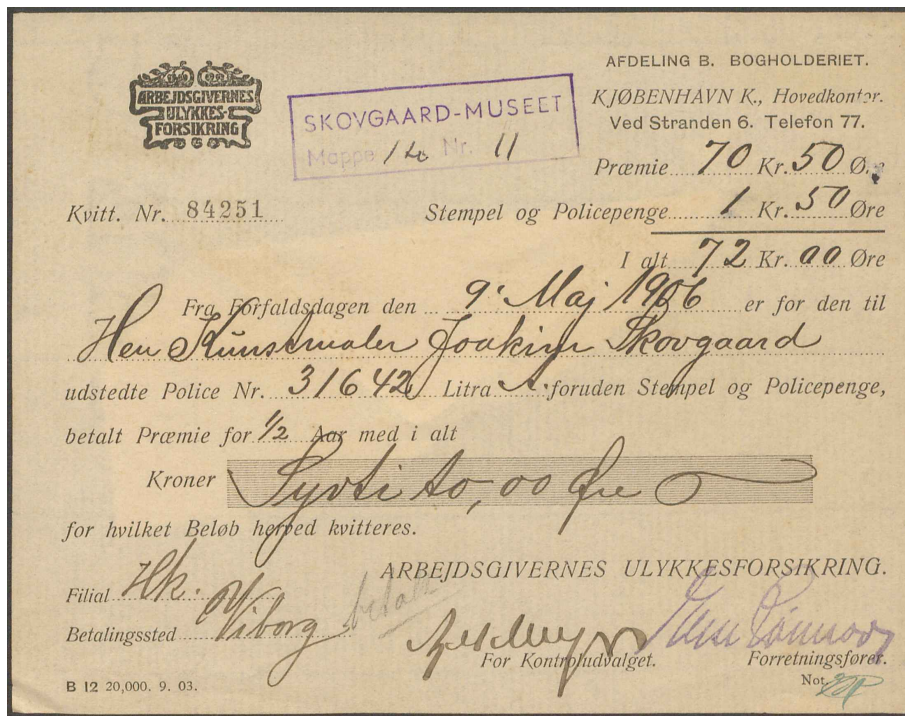 ARBEJDSGIVERNES
ULYKKES-
FORSIKRING
SKOVGAARD-MUSEET
Mappe 14 Nr. 11
AFDELING B. BOGHOLDERIET.
KJØBENHAVN K., Hovedkontor.
Ved Stranden 6. Telefon 77.
Præmie 70 Kr. 50 Øre
Kvitt. Nr. 84251
Stempel og Policepenge 1 Kr. 50 Øre
I alt 72 Kr. 00 Øre
Fra Forfaldsdagen den 9' Maj 1906 er for den til
Herr Kunstmaler Joakim Skovgaard
udstedte Police Nr. 31642 Litra A. foruden Stempel og Policepenge,
betalt Præmie for 1/2 Aar med i alt
Kroner Syvti to, 00 Øre
for hvilket Beløb herved kvitteres.
ARBEJDSGIVERNES ULYKKESFORSIKRING.
Filial Hk.
Betalingssted Viborg betalt
For Kontroludvalget.
Forretningsfører.
Not.
B 12 20,000. 9. 03.